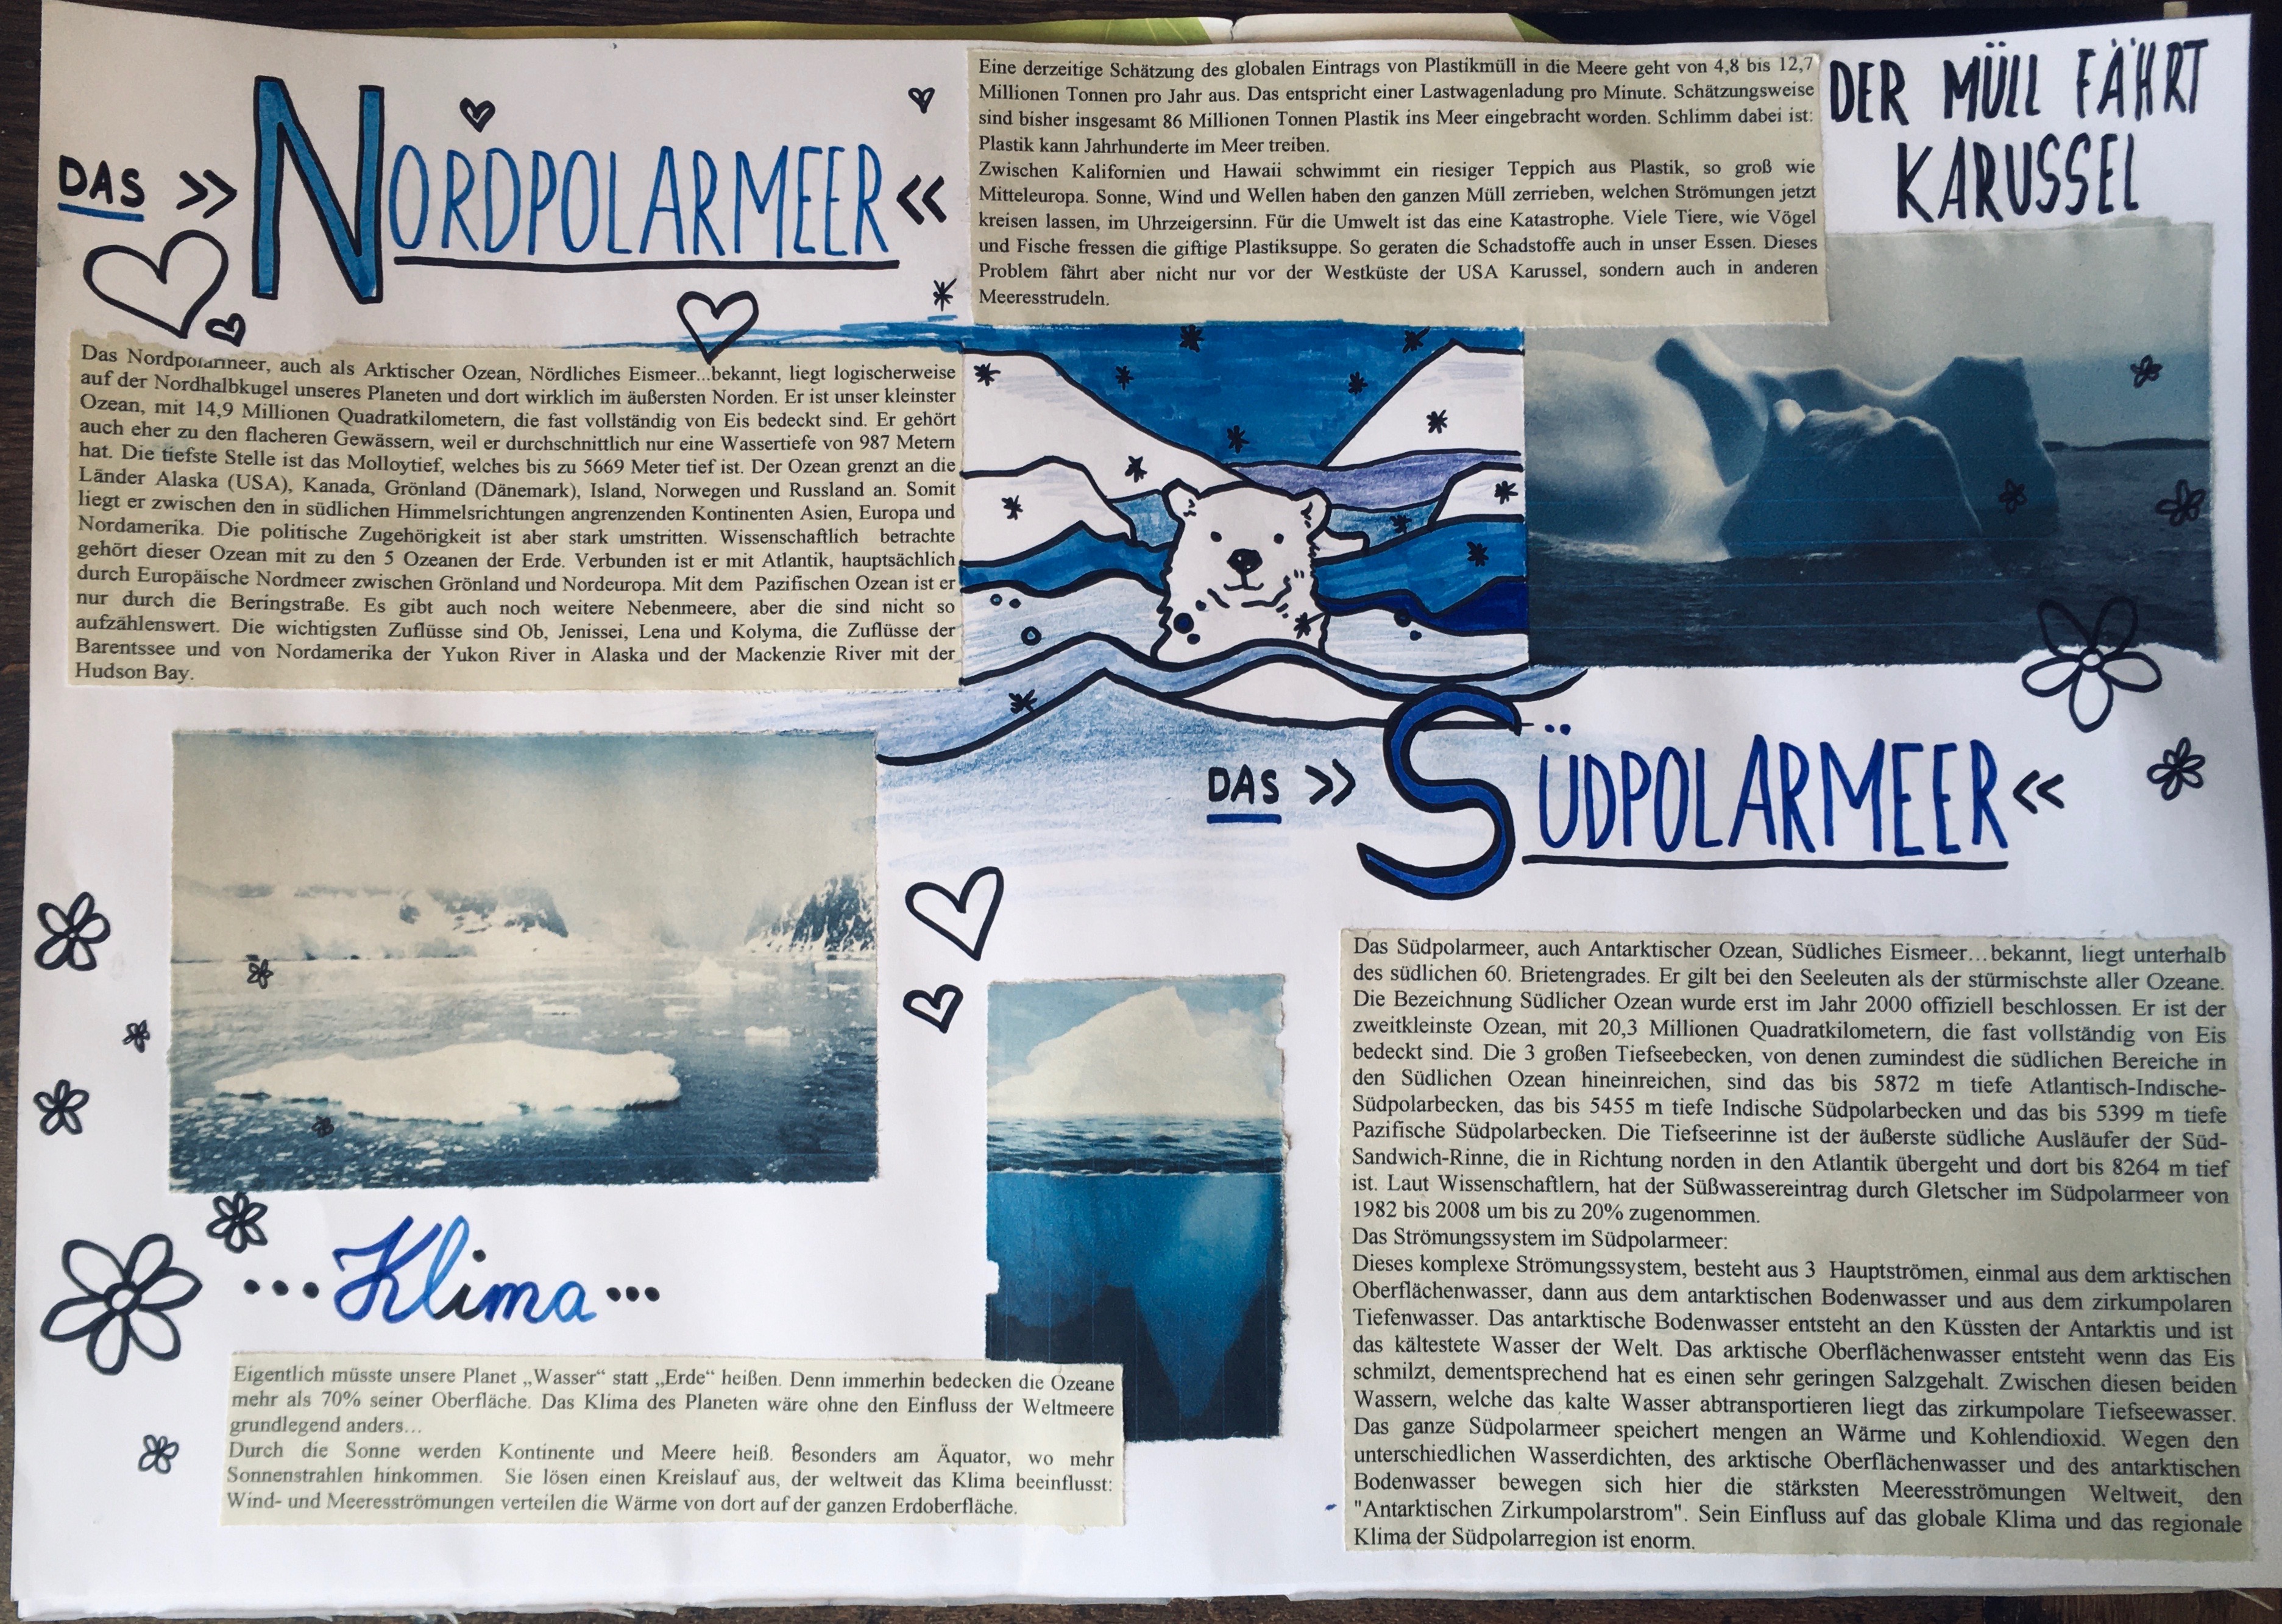 DAS >> NORDPOLARMEER <<
Das Nordpolarmeer, auch als Arktischer Ozean, Nördliches Eismeer...bekannt, liegt logischerweise
auf der Nordhalbkugel unseres Planeten und dort wirklich im äußersten Norden. Er ist unser kleinster
Ozean, mit 14,9 Millionen Quadratkilometern, die fast vollständig von Eis bedeckt sind. Er gehört
auch eher zu den flacheren Gewässern, weil er durchschnittlich nur eine Wassertiefe von 987 Metern
hat. Die tiefste Stelle ist das Molloytief, welches bis zu 5669 Meter tief ist. Der Ozean grenzt an die
Länder Alaska (USA), Kanada, Grönland (Dänemark), Island, Norwegen und Russland an. Somit
liegt er zwischen den in südlichen Himmelsrichtungen angrenzenden Kontinenten Asien, Europa und
Nordamerika. Die politische Zugehörigkeit ist aber stark umstritten. Wissenschaftlich betrachte
gehört dieser Ozean mit zu den 5 Ozeanen der Erde. Verbunden ist er mit Atlantik, hauptsächlich
durch Europäische Nordmeer zwischen Grönland und Nordeuropa. Mit dem Pazifischen Ozean ist er
nur durch die Beringstraße. Es gibt auch noch weitere Nebenmeere, aber die sind nicht so
aufzählenswert. Die wichtigsten Zuflüsse sind Ob, Jenissei, Lena und Kolyma, die Zuflüsse der
Barentssee und von Nordamerika der Yukon River in Alaska und der Mackenzie River mit der
Hudson Bay.
DER MÜLL FÄHRT
KARUSSEL
Eine derzeitige Schätzung des globalen Eintrags von Plastikmüll in die Meere geht von 4,8 bis 12,7
Millionen Tonnen pro Jahr aus. Das entspricht einer Lastwagenladung pro Minute. Schätzungsweise
sind bisher insgesamt 86 Millionen Tonnen Plastik ins Meer eingebracht worden. Schlimm dabei ist:
Plastik kann Jahrhunderte im Meer treiben.
Zwischen Kalifornien und Hawaii schwimmt ein riesiger Teppich aus Plastik, so groß wie
Mitteleuropa. Sonne, Wind und Wellen haben den ganzen Müll zerrieben, welchen Strömungen jetzt
kreisen lassen, im Uhrzeigersinn. Für die Umwelt ist das eine Katastrophe. Viele Tiere, wie Vögel
und Fische fressen die giftige Plastiksuppe. So geraten die Schadstoffe auch in unser Essen. Dieses
Problem fährt aber nicht nur vor der Westküste der USA Karussel, sondern auch in anderen
Meeresstrudeln.
DAS >> SÜDPOLARMEER <<
Das Südpolarmeer, auch Antarktischer Ozean, Südliches Eismeer...bekannt, liegt unterhalb
des südlichen 60. Brietengrades. Er gilt bei den Seeleuten als der stürmischste aller Ozeane.
Die Bezeichnung Südlicher Ozean wurde erst im Jahr 2000 offiziell beschlossen. Er ist der
zweitkleinste Ozean, mit 20,3 Millionen Quadratkilometern, die fast vollständig von Eis
bedeckt sind. Die 3 großen Tiefseebecken, von denen zumindest die südlichen Bereiche in
den Südlichen Ozean hineinreichen, sind das bis 5872 m tiefe Atlantisch-Indische-
Südpolarbecken, das bis 5455 m tiefe Indische Südpolarbecken und das bis 5399 m tiefe
Pazifische Südpolarbecken. Die Tiefseerinne ist der äußerste südliche Ausläufer der Süd-
Sandwich-Rinne, die in Richtung norden in den Atlantik übergeht und dort bis 8264 m tief
ist. Laut Wissenschaftlern, hat der Süßwassereintrag durch Gletscher im Südpolarmeer von
1982 bis 2008 um bis zu 20% zugenommen.
Das Strömungssystem im Südpolarmeer:
Dieses komplexe Strömungssystem, besteht aus 3 Hauptströmen, einmal aus dem arktischen
Oberflächenwasser, dann aus dem antarktischen Bodenwasser und aus dem zirkumpolaren
Tiefenwasser. Das antarktische Bodenwasser entsteht an den Küssten der Antarktis und ist
das kältestete Wasser der Welt. Das arktische Oberflächenwasser entsteht wenn das Eis
schmilzt, dementsprechend hat es einen sehr geringen Salzgehalt. Zwischen diesen beiden
Wassern, welche das kalte Wasser abtransportieren liegt das zirkumpolare Tiefseewasser.
Das ganze Südpolarmeer speichert mengen an Wärme und Kohlendioxid. Wegen den
unterschiedlichen Wasserdichten, des arktische Oberflächenwasser und des antarktischen
Bodenwasser bewegen sich hier die stärksten Meeresströmungen Weltweit, den
"Antarktischen Zirkumpolarstrom". Sein Einfluss auf das globale Klima und das regionale
Klima der Südpolarregion ist enorm.
...Klima...
Eigentlich müsste unsere Planet „Wasser“ statt „Erde“ heißen. Denn immerhin bedecken die Ozeane
mehr als 70% seiner Oberfläche. Das Klima des Planeten wäre ohne den Einfluss der Weltmeere
grundlegend anders...
Durch die Sonne werden Kontinente und Meere heiß. Besonders am Äquator, wo mehr
Sonnenstrahlen hinkommen. Sie lösen einen Kreislauf aus, der weltweit das Klima beeinflusst:
Wind- und Meeresströmungen verteilen die Wärme von dort auf der ganzen Erdoberfläche.